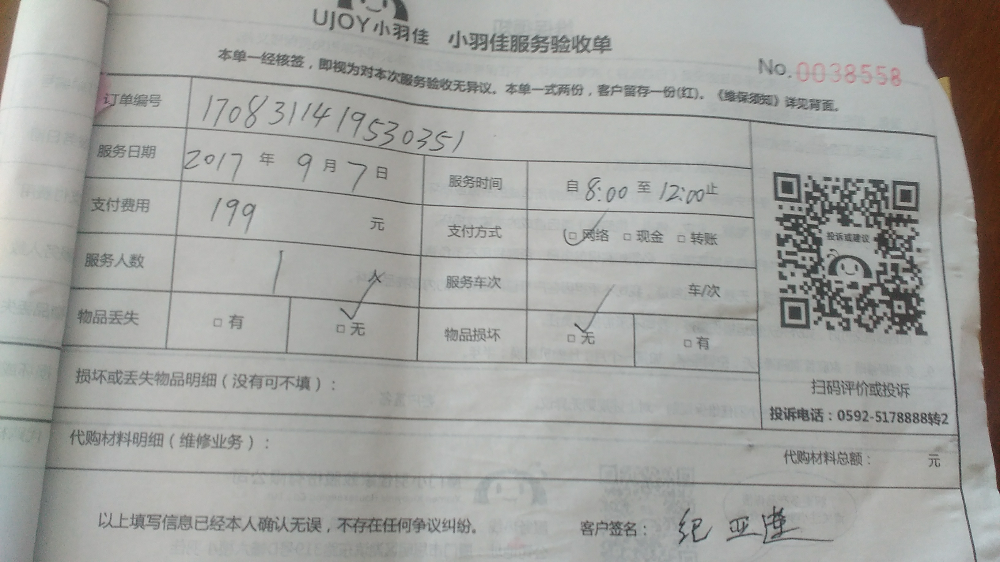 UJOY小羽佳 小羽佳服务验收单
本单一经核签，即视为对本次服务验收无异议。本单一式两份，客户留存一份(红)。《维保须知》详见背面。
No.0038558
订单编号 170831141953035 1
服务日期 2017 年 9 月 7 日 服务时间 自 8:00 至 12:00 止
支付费用 199 元 支付方式 □网络 □现金 □转账
服务人数 1 人 服务车次 车/次
物品丢失 □有 □无 物品损坏 □无 □有
投诉或建议
扫码评价或投诉
投诉电话：0592-5178888转2
损坏或丢失物品明细（没有可不填）：
代购材料明细（维修业务）：
代购材料总额： 元
以上填写信息已经本人确认无误，不存在任何争议纠纷。 客户签名： 纪亚